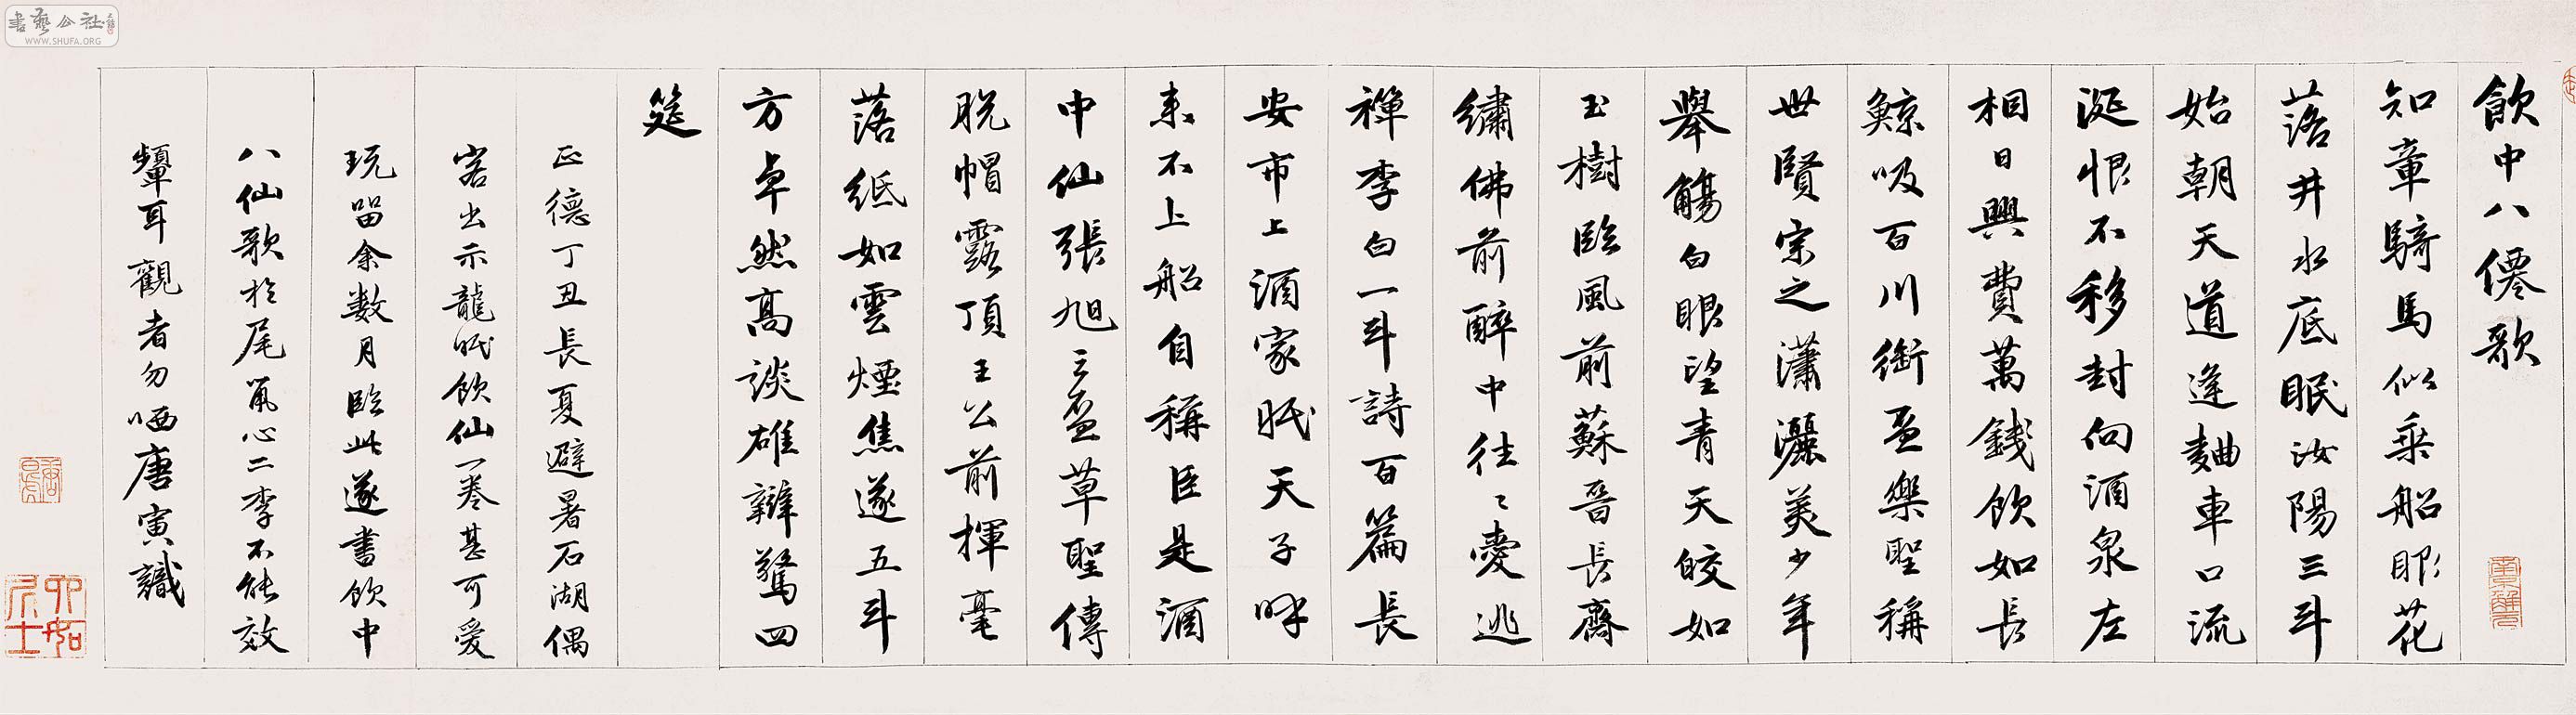 飲中八僊歌
知章騎馬似乘船眼花
落井水底眠汝陽三斗
始朝天道逢麯車口流
涎恨不移封向酒泉左
相日興費萬錢飲如長
鯨吸百川銜盃樂聖稱
世賢宗之瀟灑美少年
舉觴白眼望青天皎如
玉樹臨風前蘇晉長齋
繡佛前醉中往〻愛逃
禪李白一斗詩百篇長
安市上酒家眠天子呼
來不上船自稱臣是酒
中仙張旭三盃草聖傳
脫帽露頂王公前揮毫
落紙如雲煙焦遂五斗
方卓然高談雄辯驚四
筵
正德丁丑長夏避暑石湖偶
客出示龍眠飲仙一卷甚可愛
玩留余數月臨此遂書飲中
八仙歌於尾心二李不能效
顰耳觀者勿哂唐寅識
六如居士
書藝公社
WWW.SHUFA.ORG